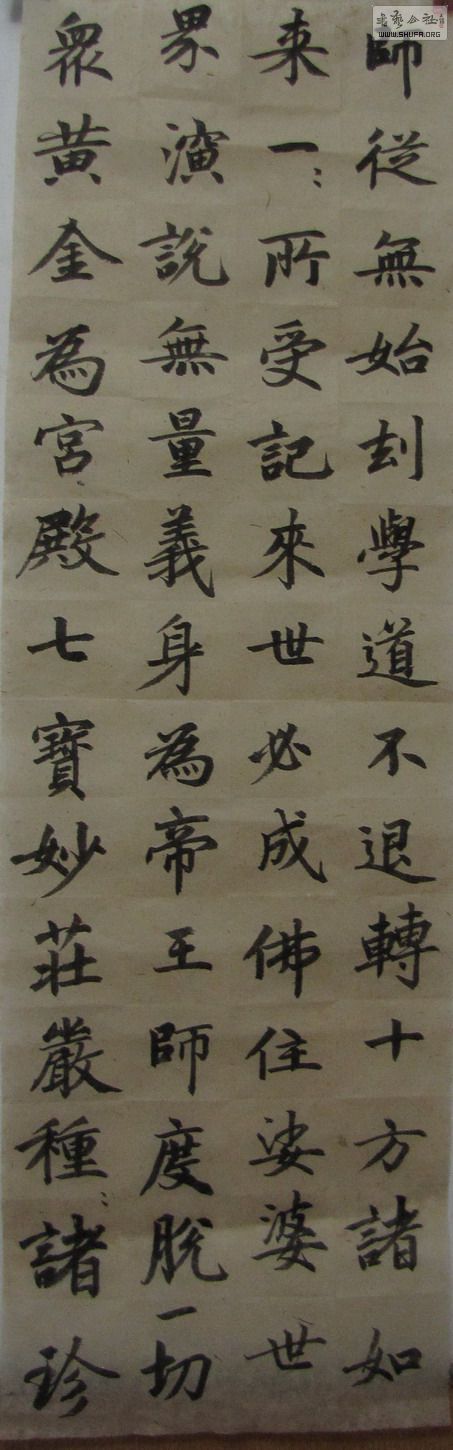 師從無始刦學道不退轉十方諸如
来一〻所受記來世必成佛住娑婆世
界演說無量義身為帝王師度脫一切
眾黄金為宮殿七寶妙莊嚴種〻諸珍
書藝公社
WWW.SHUFA.ORG